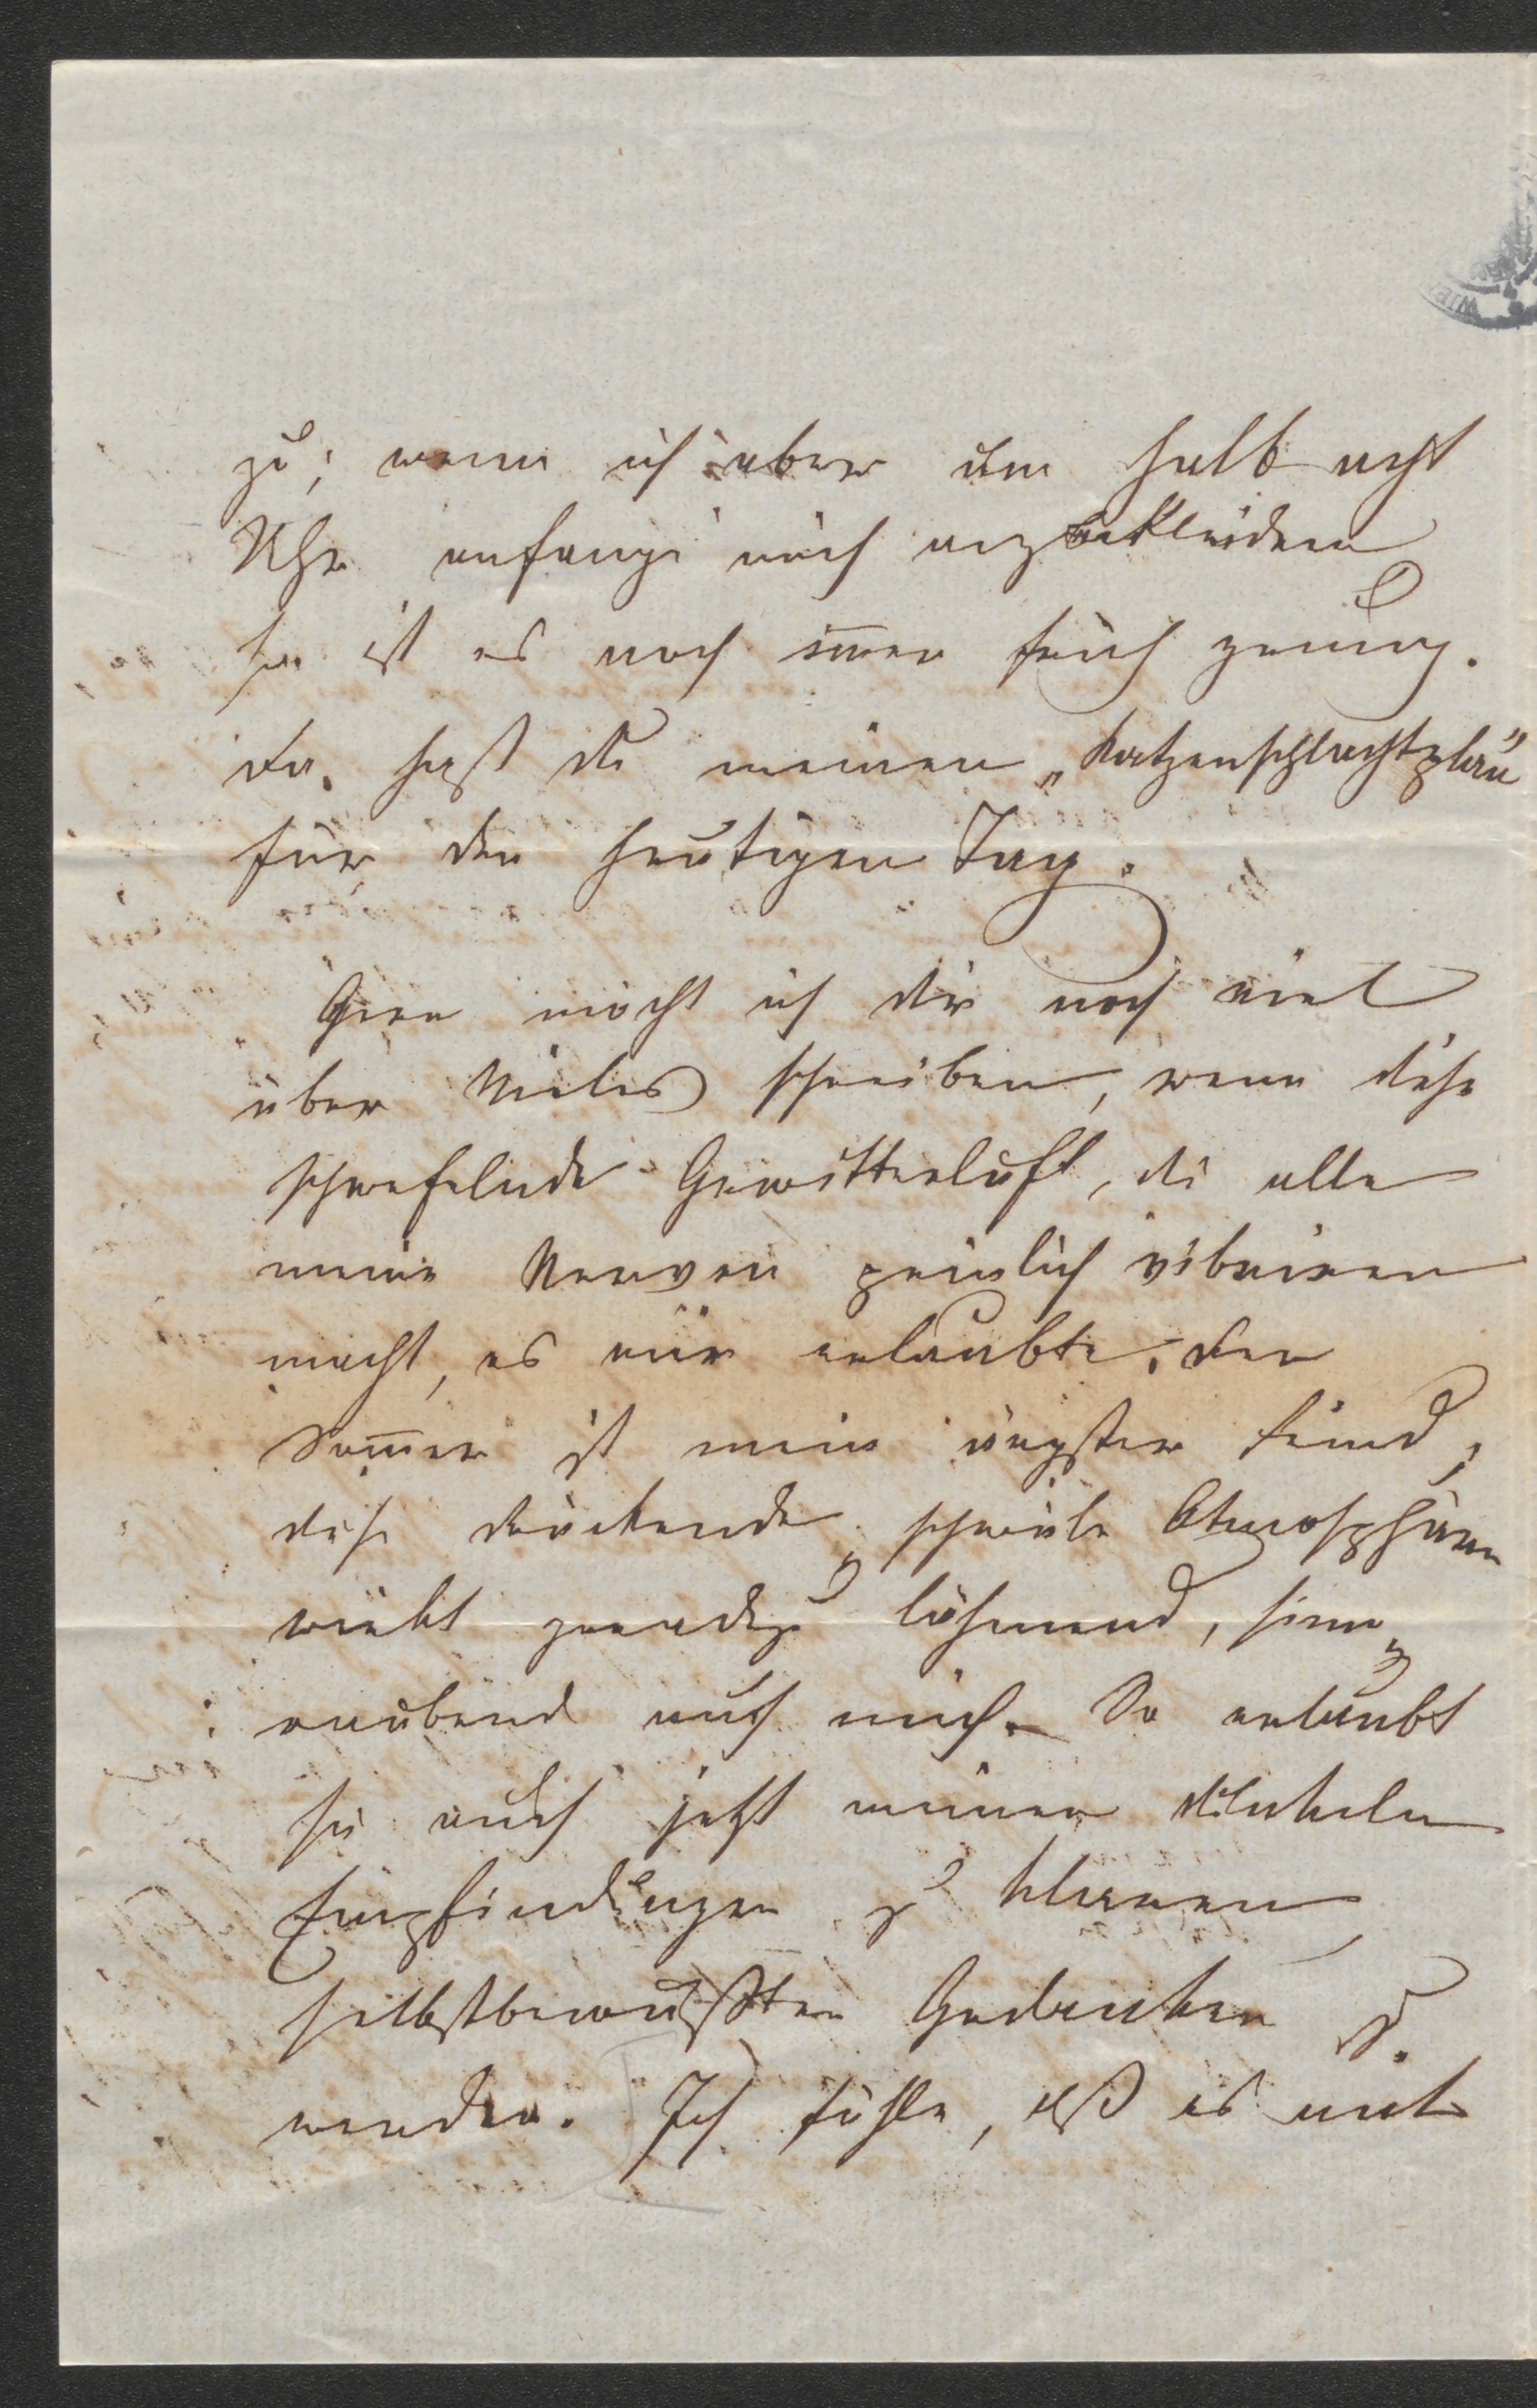 zu; wenn ich aber um halb acht
Uhr anfange mich anzukleiden
so ist es noch im̅er früh genug.
Da hast du meinen „Katzenschlachtplan“
für den heutigen Tag.
Gern möcht ich dir noch viel
über Vieles schreiben, wenn diese
schwefelnde Gewitterluft, die alle
meine Nerven peinlich vibriren
macht, es mir erlaubte; der
Som̅er ist mein ärgster Feind,
diese drückende, schwüle Atmosphäre
wirkt geradezu lähmend, sinn-
raubend auf mich. So erlaubt
sie auch jetzt meinen dunkeln
Empfindungen zu klaren,
selbstbewußten Gedanken zu
werden. Ich fühle, daß es mit